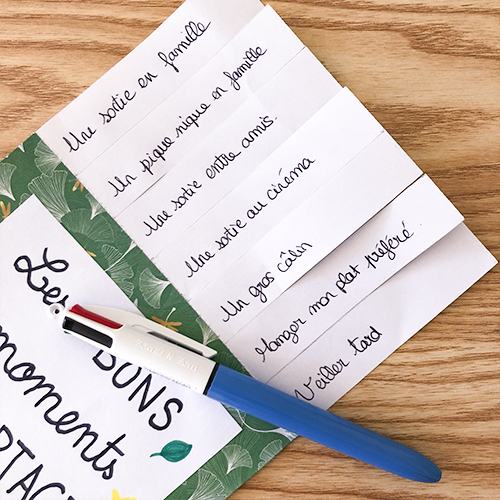 Une sortie en famille
Un pique nique en famille
Une sortie entre amis.
Une sortie au cinéma
Un gros câlin
Manger mon plat préféré.
Veiller tard
Les
BONS
moments